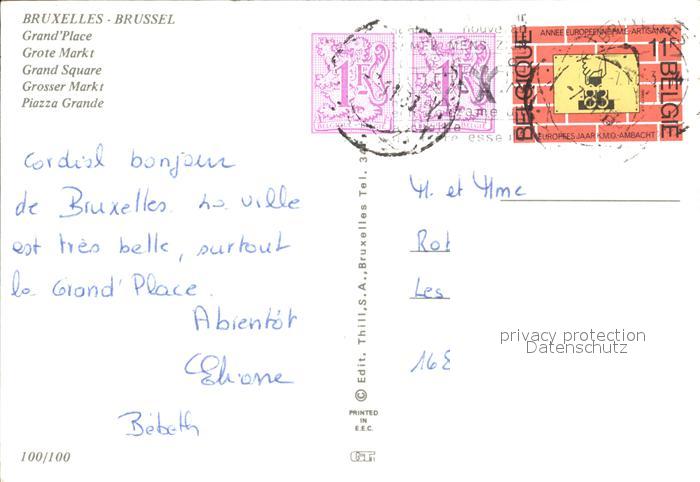 BRUXELLES - BRUSSEL
Grand'Place
Grote Markt
Grand Square
Grosser Markt
Piazza Grande
1F
1F
BELGIQUE
ANNEE EUROPEENNE PME-ARTISANAT
11F
BELGIË
EUROPEES JAAR K.M.O.-AMBACHT
Cordial bonjour
de Bruxelles. La ville
est très belle, surtout
la Grand'Place.
Abientôt
Eliane
Bébeth
M. et Mme
Rot
Les
16
privacy protection
Datenschutz
© Edit. Thill, S.A., Bruxelles Tel.
PRINTED
IN
E.E.C.
100/100